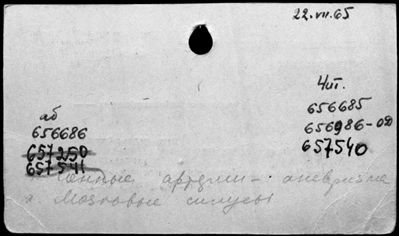 22.VII.65
Чит.
656685
656986-ОД
657540
аб
656686
657250
657541
Сонные артерии - аневризма
х Мозговые синусы